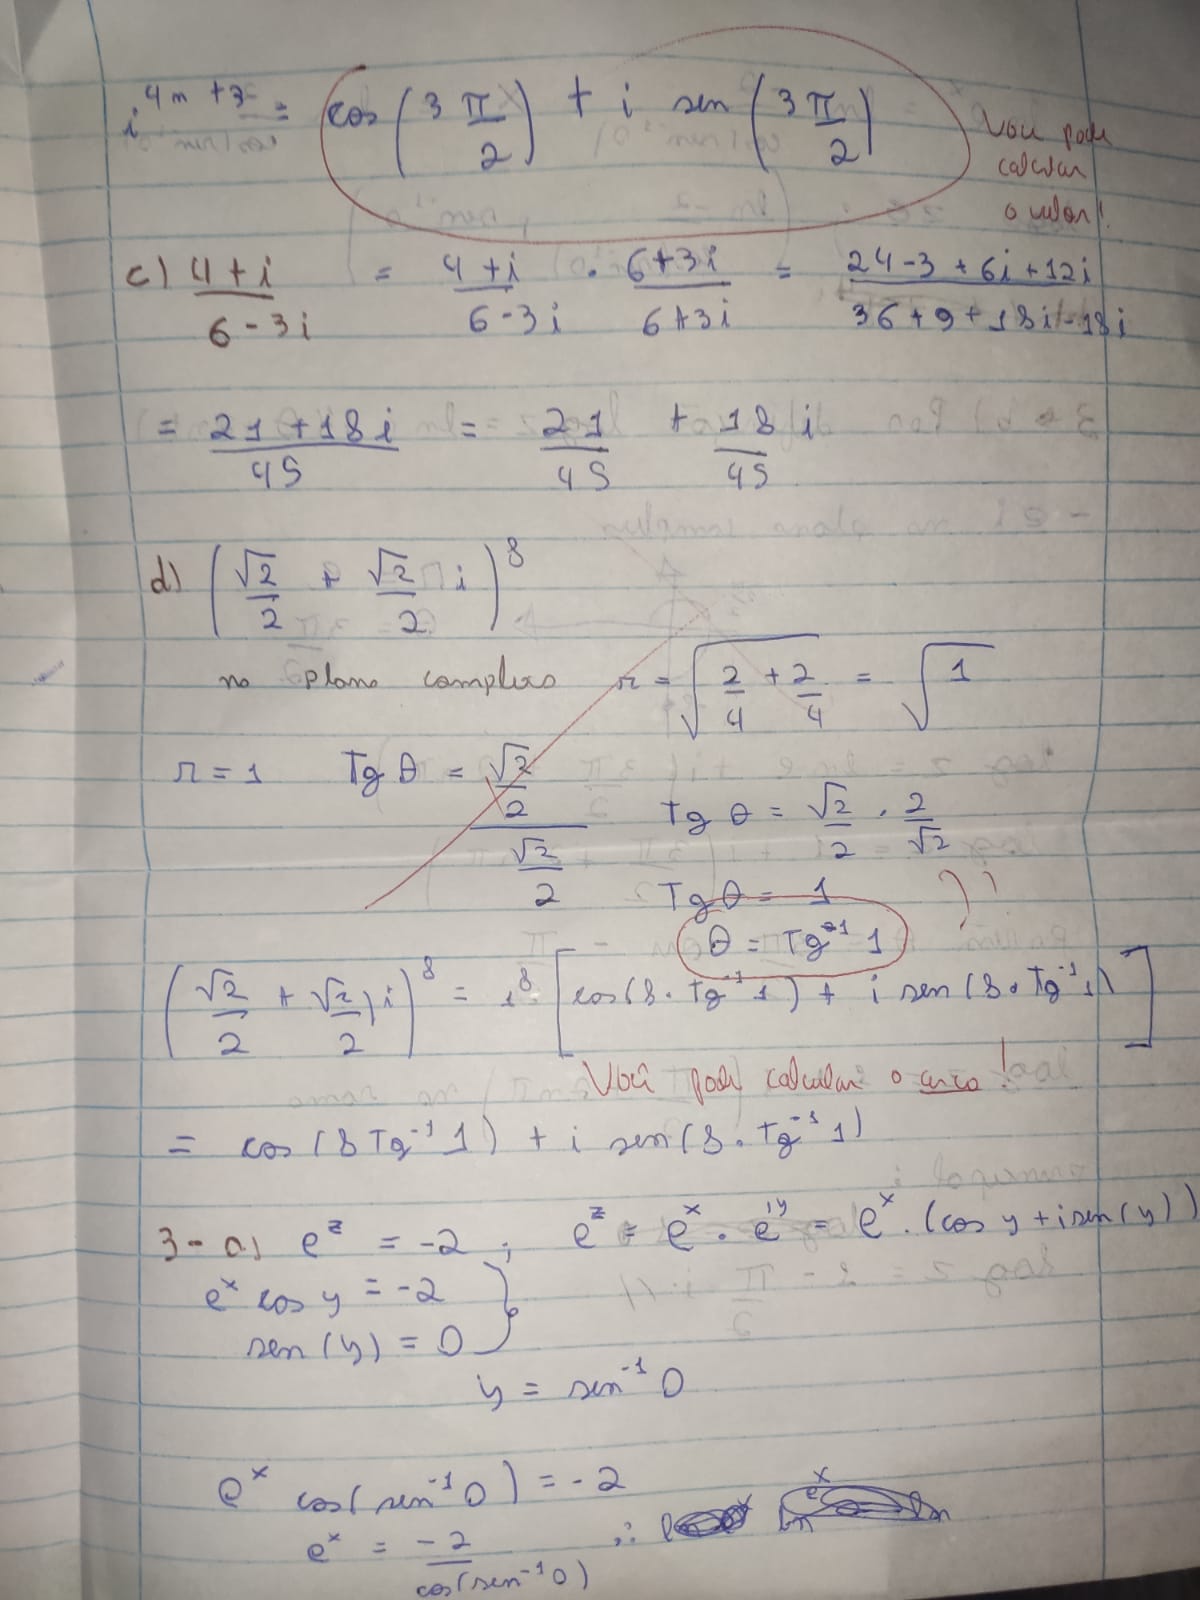 i^{4n+3} = cos(3π/2) + i sen(3π/2)
Você pode
calcular
o valor!
c) (4+i)/(6-3i) = (4+i)/(6-3i) . (6+3i)/(6+3i) = (24-3+6i+12i)/(36+9+18i-18i)
= (21+18i)/45 = 21/45 + 18/45 i
d) (√2/2 + √2/2 i)^8
no plano complexo r = √(2/4 + 2/4) = √1
r = 1 Tg θ = (√2/2)/(√2/2) Tg θ = √2/2 . 2/√2
Tg θ = 1
θ = Tg^{-1} 1
(√2/2 + √2/2 i)^8 = 1^8 [cos(8 . Tg^{-1} 1) + i sen(8 . Tg^{-1} 1)]
Você pode calcular o arco!
= cos(8 Tg^{-1} 1) + i sen(8 . Tg^{-1} 1)
3- a) e^z = -2 ; e^z = e^x . e^{iy} = e^x . (cos y + i sen(y))
e^x cos y = -2
sen(y) = 0 }
y = sen^{-1} 0
e^x cos(sen^{-1} 0) = -2
e^x = -2/cos(sen^{-1} 0) ∴